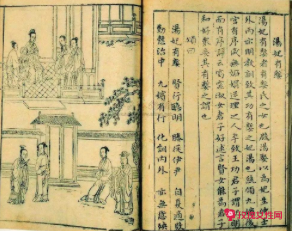 湯妃有㜪
湯妃有㜪者有㜪氏之女也殷湯娶以為妃生仲壬
外丙亦明教訓致其功有㜪之妃湯也統領九嬪後
宮有序咸無妬媢逆理之人卒致王功君子謂妃明
而有序詩云窈窕淑女君子好逑言賢女能為君子
和好眾妾其有㜪之謂也
頌曰
湯妃有㜪 行聰明 媵從伊尹 自夏適殷
勤慤治中 九嬪有行 化訓內外 亦無愆殃
女性网